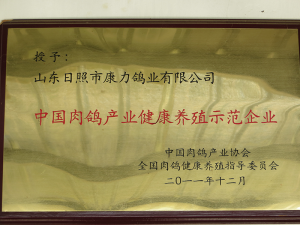 授予：
山东日照市康力鸽业有限公司
中国肉鸽产业健康养殖示范企业
中国肉鸽产业协会
全国肉鸽健康养殖指导委员会
二〇一一年十二月